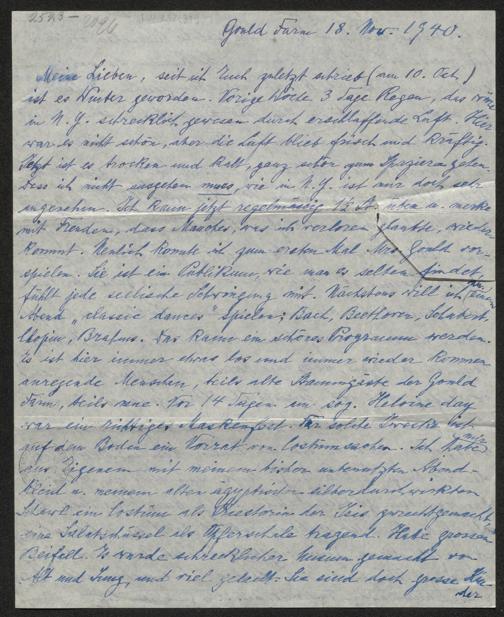 2523 —
Gould Farm 18. Nov. 1940.
Meine Lieben, seit ich Euch zuletzt schrieb (am 10. Oct.)
ist es Winter geworden. Vorige Woche 3 Tage Regen, das wäre
in N.Y. schrecklich gewesen durch erschlaffende Luft. Hier
war es nicht schön, aber die Luft blieb frisch und kräftig.
Jetzt ist es trocken und kalt, ganz schön zum Spazierengehen.
Dass ich nicht ausgehen muss, wie in N.Y. ist mir doch sehr
angenehm. Ich kann jetzt regelmässig 1½ St. üben u. merke
mit Freuden, dass Manches, was ich verloren glaubte, wieder
kommt. Neulich konnte ich zum ersten Mal Mrs. Gould vor-
spielen. Sie ist ein Publikum, wie man es selten findet,
fühlt jede seelische Schwingung mit. Nächstens will ich an einem
Abend "classic dances" spielen: Bach, Beethoven, Schubert,
Chopin, Brahms. Das kann ein schönes Programm werden.
Es ist hier immer etwas los und immer wieder kommen
anregende Menschen, teils alte Stammgäste der Gould
Farm, teils neue. Vor 14 Tagen am sog. Heloine day
war ein richtiges Maskenfest. Für solche Zwecke ist
auf dem Boden ein Vorrat von Costumsachen. Ich habe mir
aus Eigenem mit meinem bisher unbenutzten Abend-
kleid u. meinem alten ägyptischen silberdurchwirkten
Shawl ein Costüm als Priesterin der Isis zurechtgemacht,
eine Salatschüssel als Opferschale tragend. Habe grossen
Beifall. Es wurde schrecklicher Unsinn gemacht von
Alt und Jung, und viel gelacht. Sie sind doch grosse Kin-
der